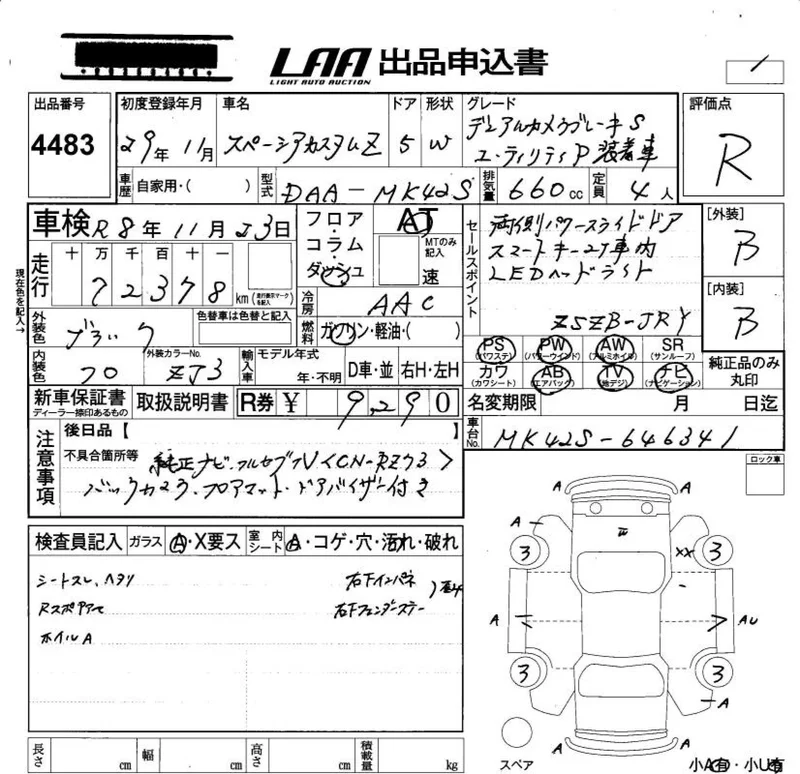 LAA 出品申込書
LIGHT AUTO AUCTION
出品番号 初度登録年月 車名 ドア 形状 グレード 評価点
4483 29年 11月 スペーシアカスタムZ 5 W デュアルカメラブレーキS
ユーティリティP 装着車 R
車歴 自家用・( ) 型式 DAA-MK42S 排気量 660cc 定員 4人
車検 R8年 11月 23日 フロア・コラム・ダッシュ AT MTのみ記入 速
セールスポイント 両側パワースライドドア
スマートキー
LEDヘッドライト
ZSZB-JRY
[外装] B
[内装] B
現在色を記入→
走行 十 万 千 百 十 一
72378 km (走行表示マークを記入)
冷房 AAC
外装色 ブラック 色替車は色替と記入 燃料 ガソリン・軽油・( )
内装色 クロ 外装カラーNo. ZJ3 輸入車 モデル年式 年・不明 D車・並 右H・左H
PS (パワステ) PW (パワーウインド) AW (アルミホイル) SR (サンルーフ)
カワ (カワシート) AB (エアバッグ) TV (地デジ) ナビ (ナビゲーション)
純正品のみ丸印
新車保証書 ディーラー捺印あるもの 取扱説明書 R券 ¥ 9,290
名変期限 月 日迄
車台No. MK42S-646341
注意事項 後日品【 】
不具合箇所等 純正ナビ・フルセグTV<CN-RZ73>
バックカメラ・フロアマット・ドアバイザー付き
ロック車
検査員記入 ガラス A・X要ス 室内シート A・コゲ・穴・汚れ・破れ
シートスレ、ヘタリ 右下インパネ
Rスポアアて 右下フェンダーステー
ホイルA
A A
A A
3 XX 3
A AU
3 3
A A
A A
スペア
長さ cm 幅 cm 高さ cm 積載量 kg
小A有・小U有